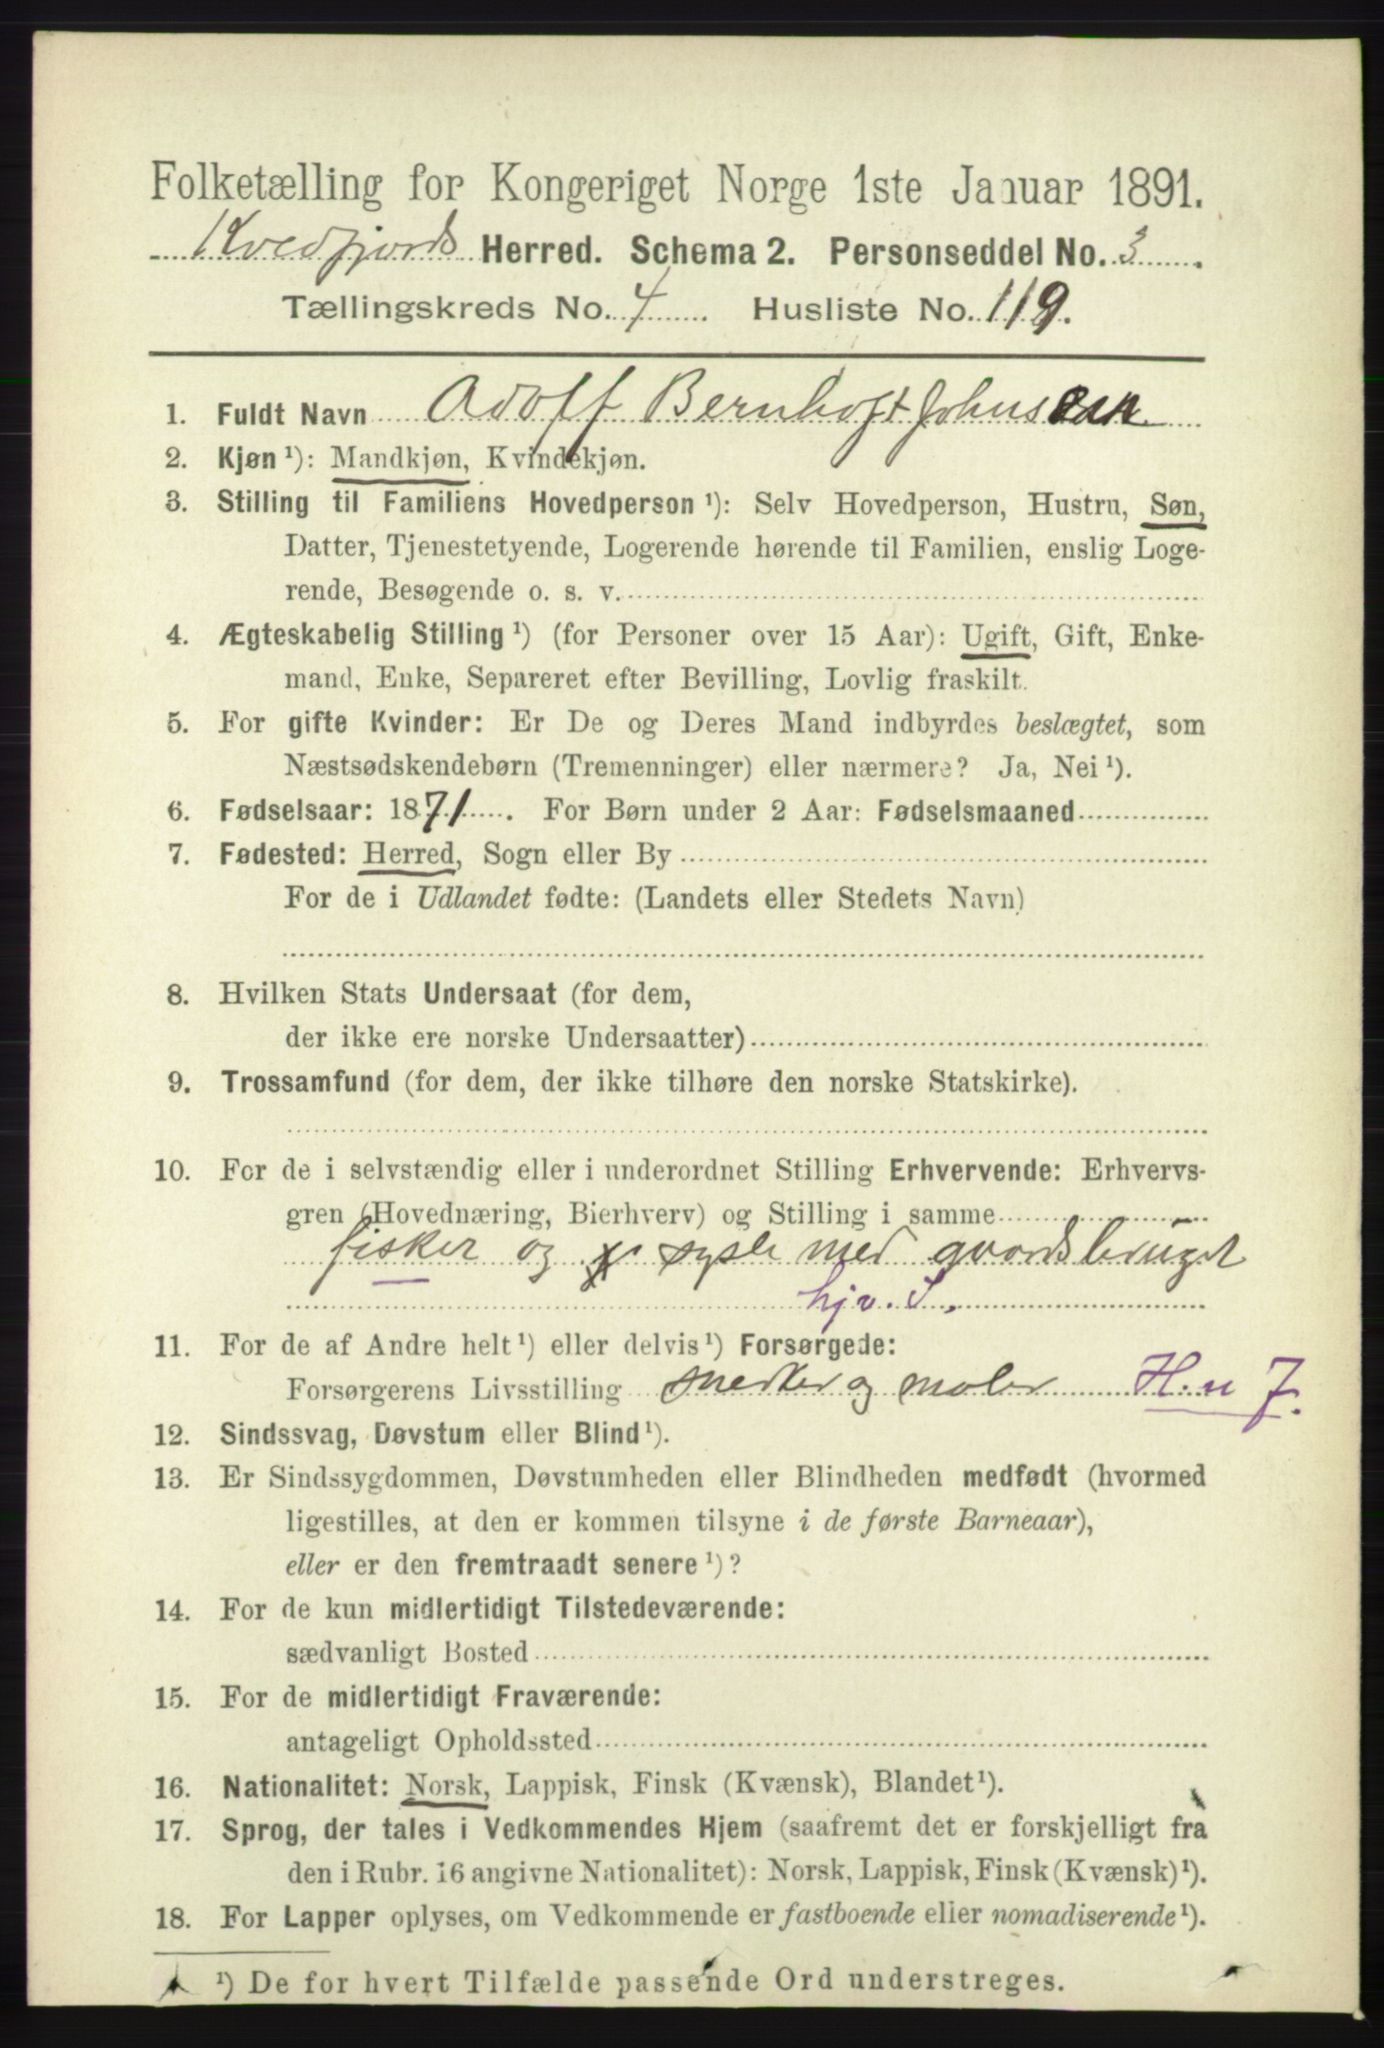 Folketælling for Kongeriget Norge 1ste Januar 1891.
Kvedfjords Herred. Schema 2. Personseddel No. 3.
Tællingskreds No. 4. Husliste No. 119.
1. Fuldt Navn Adolf Bernhoft Johnsen
2. Kjøn¹): Mandkjøn, Kvindekjøn.
3. Stilling til Familiens Hovedperson¹): Selv Hovedperson, Hustru, Søn,
Datter, Tjenestetyende, Logerende hørende til Familien, enslig Loge-
rende, Besøgende o. s. v.
4. Ægteskabelig Stilling¹) (for Personer over 15 Aar): Ugift, Gift, Enke-
mand, Enke, Separeret efter Bevilling, Lovlig fraskilt.
5. For gifte Kvinder: Er De og Deres Mand indbyrdes beslægtet, som
Næstsødskendebørn (Tremenninger) eller nærmere? Ja, Nei¹).
6. Fødselsaar: 1871. For Børn under 2 Aar: Fødselsmaaned
7. Fødested: Herred, Sogn eller By
For de i Udlandet fødte: (Landets eller Stedets Navn)
8. Hvilken Stats Undersaat (for dem,
der ikke ere norske Undersaatter)
9. Trossamfund (for dem, der ikke tilhøre den norske Statskirke).
10. For de i selvstændig eller i underordnet Stilling Erhvervende: Erhvervs-
gren (Hovednæring, Bierhverv) og Stilling i samme
fisker og sysle med gaardsbruget
hjv. S.
11. For de af Andre helt¹) eller delvis¹) Forsørgede:
Forsørgerens Livsstilling snedker og maler H. u 7.
12. Sindssvag, Døvstum eller Blind¹).
13. Er Sindssygdommen, Døvstumheden eller Blindheden medfødt (hvormed
ligestilles, at den er kommen tilsyne i de første Barneaar),
eller er den fremtraadt senere¹)?
14. For de kun midlertidigt Tilstedeværende:
sædvanligt Bosted
15. For de midlertidigt Fraværende:
antageligt Opholdssted
16. Nationalitet: Norsk, Lappisk, Finsk (Kvænsk), Blandet¹).
17. Sprog, der tales i Vedkommendes Hjem (saafremt det er forskjelligt fra
den i Rubr. 16 angivne Nationalitet): Norsk, Lappisk, Finsk (Kvænsk)¹).
18. For Lapper oplyses, om Vedkommende er fastboende eller nomadiserende¹).
¹) De for hvert Tilfælde passende Ord understreges.